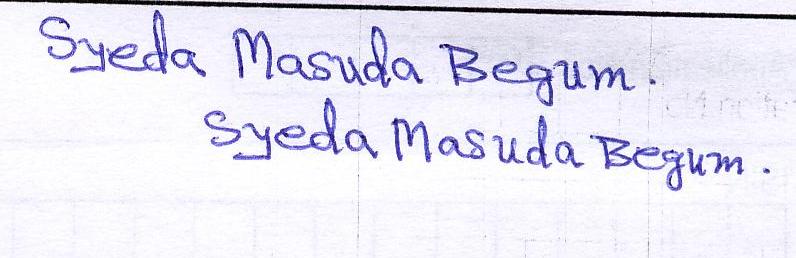 Syeda Masuda Begum.
Syeda Masuda Begum.